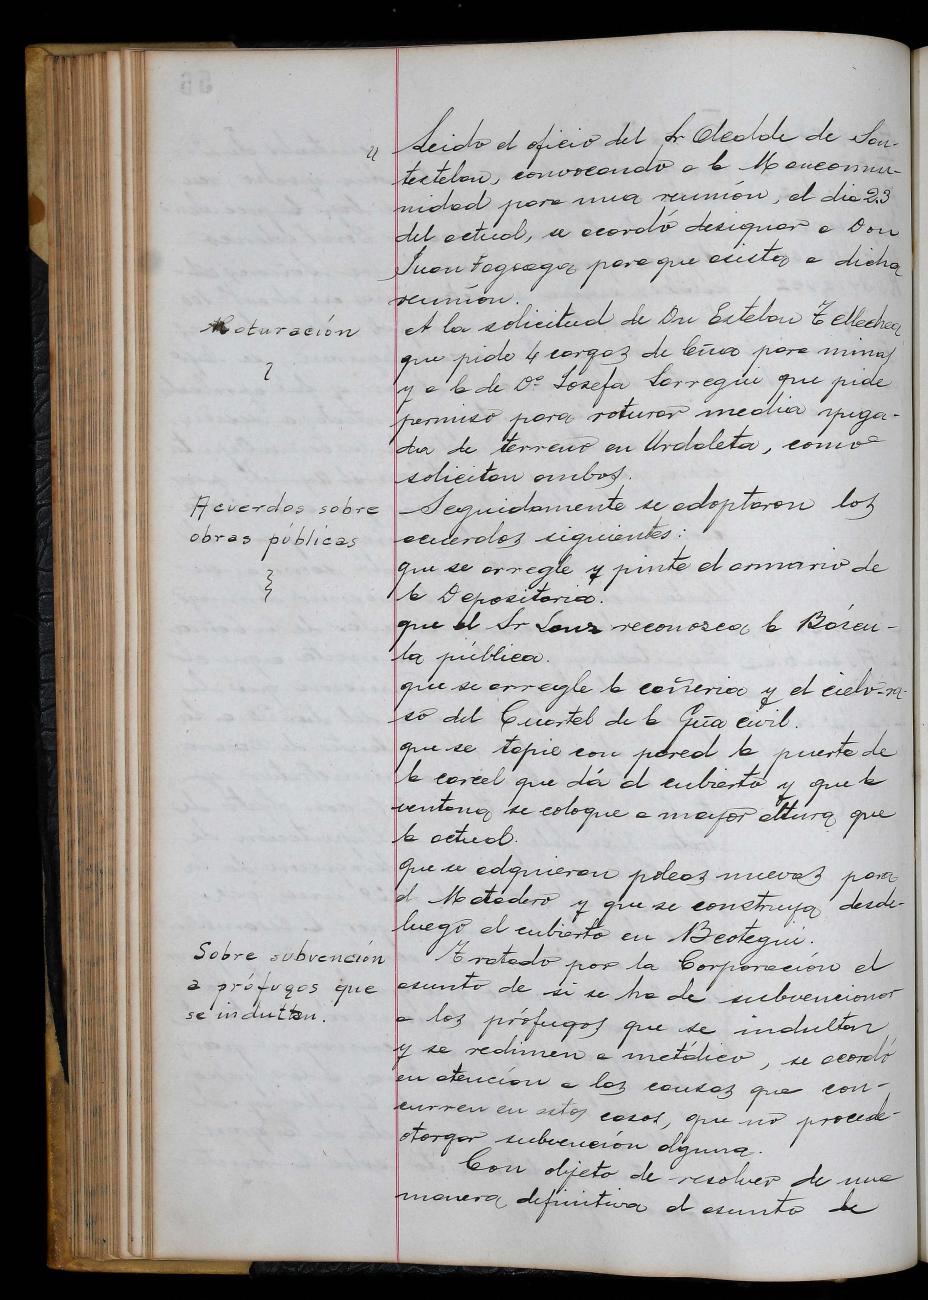 Leido el oficio del Sr Alcalde de San-
testeban, convocando a la Mancomu-
nidad para una reunión, el dia 23
del actual, se acordó designar a Don
Juan Fagoaga para que asista a dicha
reunión.
Roturación
A la solicitud de Dn Esteban Tellechea
que pide 4 cargas de leña para minas
y a la de Dª Josefa Larregui que pide
permiso para roturar media yuga-
da de terreno en Urdaleta, como
solicitan ambos.
Acuerdos sobre
obras públicas
Seguidamente se adoptaron los
acuerdos siguientes:
que se arregle y pinte el armario de
la Depositaria.
que el Sr Sanz reconozca la Báscu-
la pública.
que se arregle la cañeria y el cielo-ra-
so del Cuartel de la Gũa civil.
que se tapie con pared la puerta de
la carcel que dá al cubierto y que la
ventana se coloque a mayor altura que
la actual.
que se adquieran poleas nuevas para
el Matadero y que se construya desde-
luego el cubierto en Beotegui.
Sobre subvención
a prófugos que
se indultan.
Tratado por la Corporación el
asunto de si se ha de subvencionar
a los prófugos que se indultan
y se redimen a metálico, se acordó
en atención a las causas que con-
curren en estos casos, que no procede
otorgar subvención alguna.
Con objeto de resolver de una
manera definitiva el asunto de